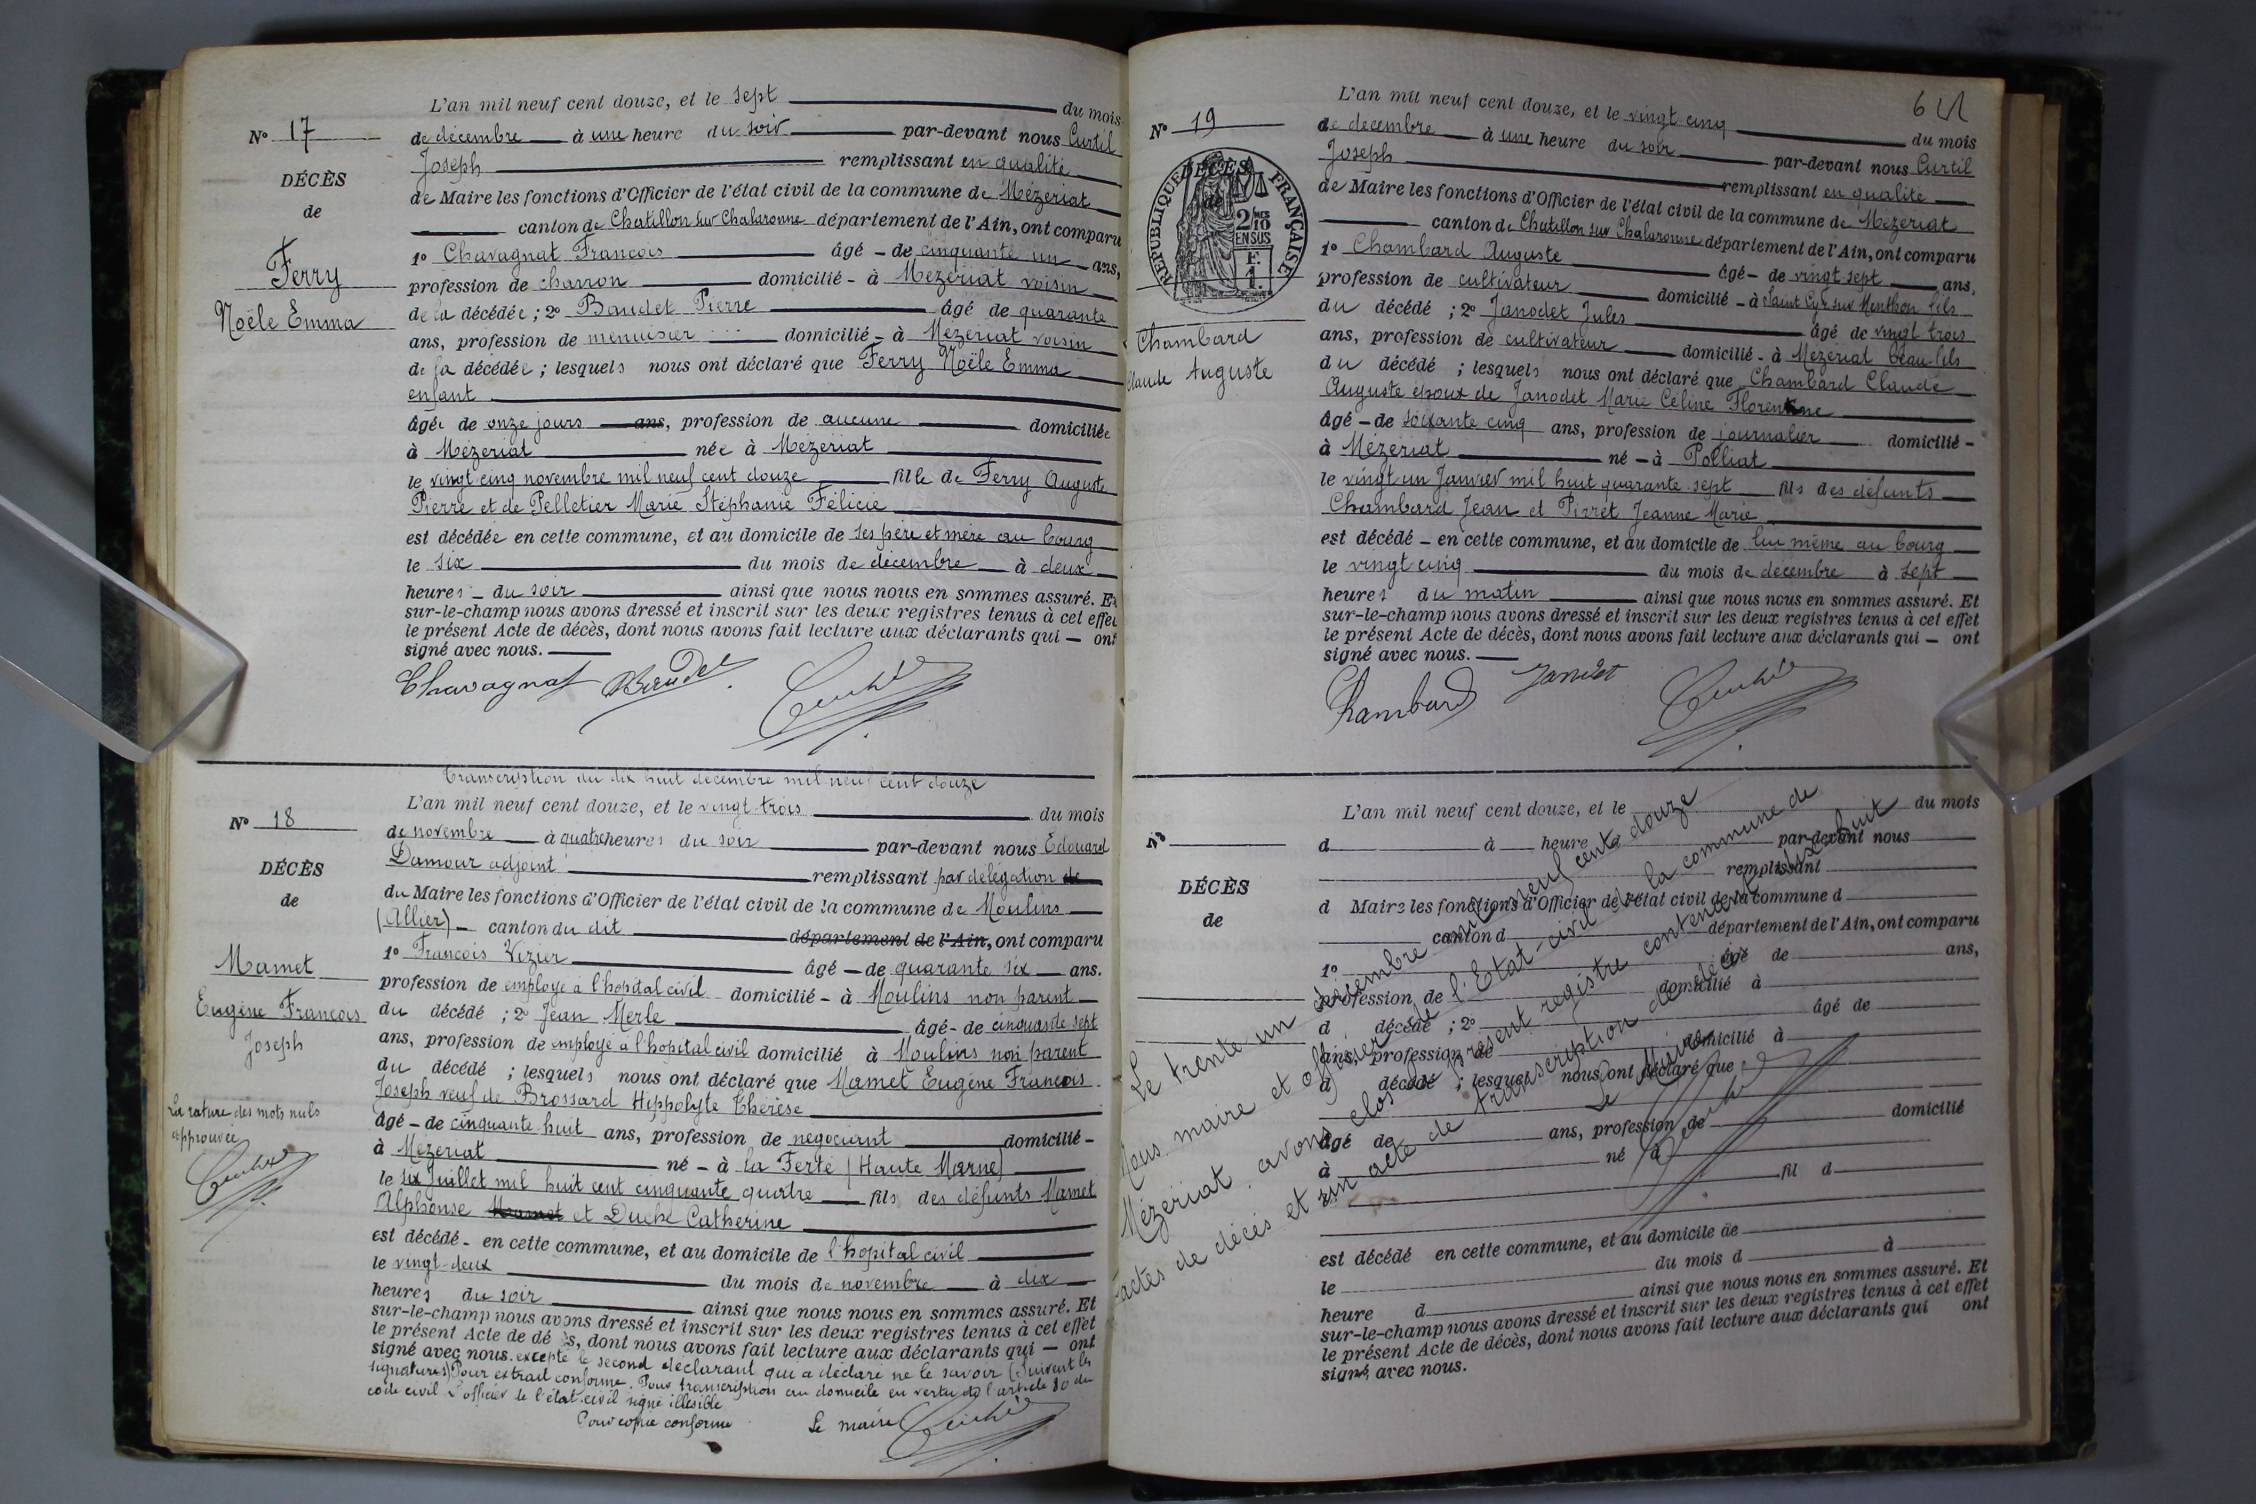 N° 17
DÉCÈS
de
Ferry
Noële Emma
L'an mil neuf cent douze, et le sept du mois
de décembre à une heure du soir par-devant nous Curtil
Joseph remplissant en qualité
de Maire les fonctions d'Officier de l'état civil de la commune de Mézeriat
canton de Chatillon sur Chalaronne département de l'Ain, ont comparu
1° Chavagnat Francois âgé - de cinquante un ans,
profession de charron domicilié - à Mezeriat voisin
de la décédée ; 2° Baudet Pierre âgé de quarante
ans, profession de menuisier domicilié - à Mezeriat voisin
de la décédée ; lesquels nous ont déclaré que Ferry Noële Emma
enfant
âgée de onze jours ans, profession de aucune domiciliée
à Mézeriat née à Mézeriat
le vingt cinq novembre mil neuf cent douze fille de Ferry Auguste
Pierre et de Pelletier Marie Stéphanie Félicie
est décédée en cette commune, et au domicile de ses père et mère au bourg
le six du mois de décembre à deux
heures - du soir ainsi que nous nous en sommes assuré. Et
sur-le-champ nous avons dressé et inscrit sur les deux registres tenus à cet effet
le présent Acte de décès, dont nous avons fait lecture aux déclarants qui — ont
signé avec nous.
Chavagnat Baudet
Transcription du dix huit décembre mil neuf cent douze
N° 18
DÉCÈS
de
Mamet
Eugène Francois
Joseph
La rature des mots nuls
approuvée
L'an mil neuf cent douze, et le vingt trois du mois
de novembre à quatre heures du soir par-devant nous Edouard
Damour adjoint remplissant par délégation de
du Maire les fonctions d'Officier de l'état civil de la commune de Moulins
(Allier) - canton du dit département de l'Ain, ont comparu
1° Francois Vizier âgé - de quarante six ans.
profession de employé a l'hopital civil domicilié - à Moulins non parent
du décédé ; 2° Jean Merle âgé - de cinquante sept
ans, profession de employé a l'hopital civil domicilié à Moulins non parent
du décédé ; lesquels nous ont déclaré que Mamet Eugène Francois
Joseph veuf de Brossard Hippolyte Thérèse
âgé - de cinquante huit ans, profession de negociant domicilié -
à Mezeriat né - à la Ferté (Haute Marne)
le six Juillet mil huit cent cinquante quatre fils des défunts Mamet
Alphonse et Duché Catherine
est décédé - en cette commune, et au domicile de l'hopital civil
le vingt-deux du mois de novembre à dix
heures du soir ainsi que nous nous en sommes assuré. Et
sur-le-champ nous avons dressé et inscrit sur les deux registres tenus à cet effet
le présent Acte de dé s, dont nous avons fait lecture aux déclarants qui — ont
signé avec nous. excepté le second déclarant qui a déclaré ne le savoir (Suivent les
signatures) Pour extrait conforme. Pour transcription au domicile en vertu de l'article 80 du
code civil L'officier de l'état-civil signé illisible
Pour copie conforme Le maire
641
N° 19
DÉCÈS
de
RÉPUBLIQUE FRANÇAISE
2/10
EN SUS
F.
1.
Chambard
Claude Auguste
L'an mil neuf cent douze, et le vingt cinq du mois
de décembre à une heure du soir par-devant nous Curtil
Joseph remplissant en qualité
de Maire les fonctions d'Officier de l'état civil de la commune de Mézeriat
canton de Chatillon sur Chalaronne département de l'Ain, ont comparu
1° Chambard Auguste âgé - de vingt sept ans,
profession de cultivateur domicilié - à Saint Cyr sur Menthon fils
du décédé ; 2° Janodet Jules âgé de vingt trois
ans, profession de cultivateur domicilié - à Mézeriat beau fils
du décédé ; lesquels nous ont déclaré que Chambard Claude
Auguste époux de Janodet Marie Céline Florentine
âgé - de soixante cinq ans, profession de journalier domicilié -
à Mézeriat né - à Polliat
le vingt un Janvier mil huit quarante sept fils des défunts
Chambard Jean et Pirret Jeanne Marie
est décédé - en cette commune, et au domicile de lui même au bourg
le vingt cinq du mois de décembre à sept
heures du matin ainsi que nous nous en sommes assuré. Et
sur-le-champ nous avons dressé et inscrit sur les deux registres tenus à cet effet
le présent Acte de décès, dont nous avons fait lecture aux déclarants qui — ont
signé avec nous.
Chambard Janodet
N°
DÉCÈS
de
L'an mil neuf cent douze, et le du mois
d à heure par-devant nous
remplissant
d Maire les fonctions d'Officier de l'état civil de la commune d
canton d département de l'Ain, ont comparu
1° âgé de ans,
profession de domicilié à
d décédé ; 2° âgé de
ans, profession de domicilié à
d décédé ; lesquel nous ont déclaré que
âgé de ans, profession de domicilié
à né à
le fil d
est décédé en cette commune, et au domicile de
le du mois d à
heure d ainsi que nous nous en sommes assuré. Et
sur-le-champ nous avons dressé et inscrit sur les deux registres tenus à cet effet
le présent Acte de décès, dont nous avons fait lecture aux déclarants qui ont
signé avec nous.
Le trente un décembre mil neuf cent douze
Nous maire et officier de l'Etat-civil de la commune de
Mézeriat avons clos le présent registre contenant dix huit
actes de décès et un acte de transcription de décès
Le Maire